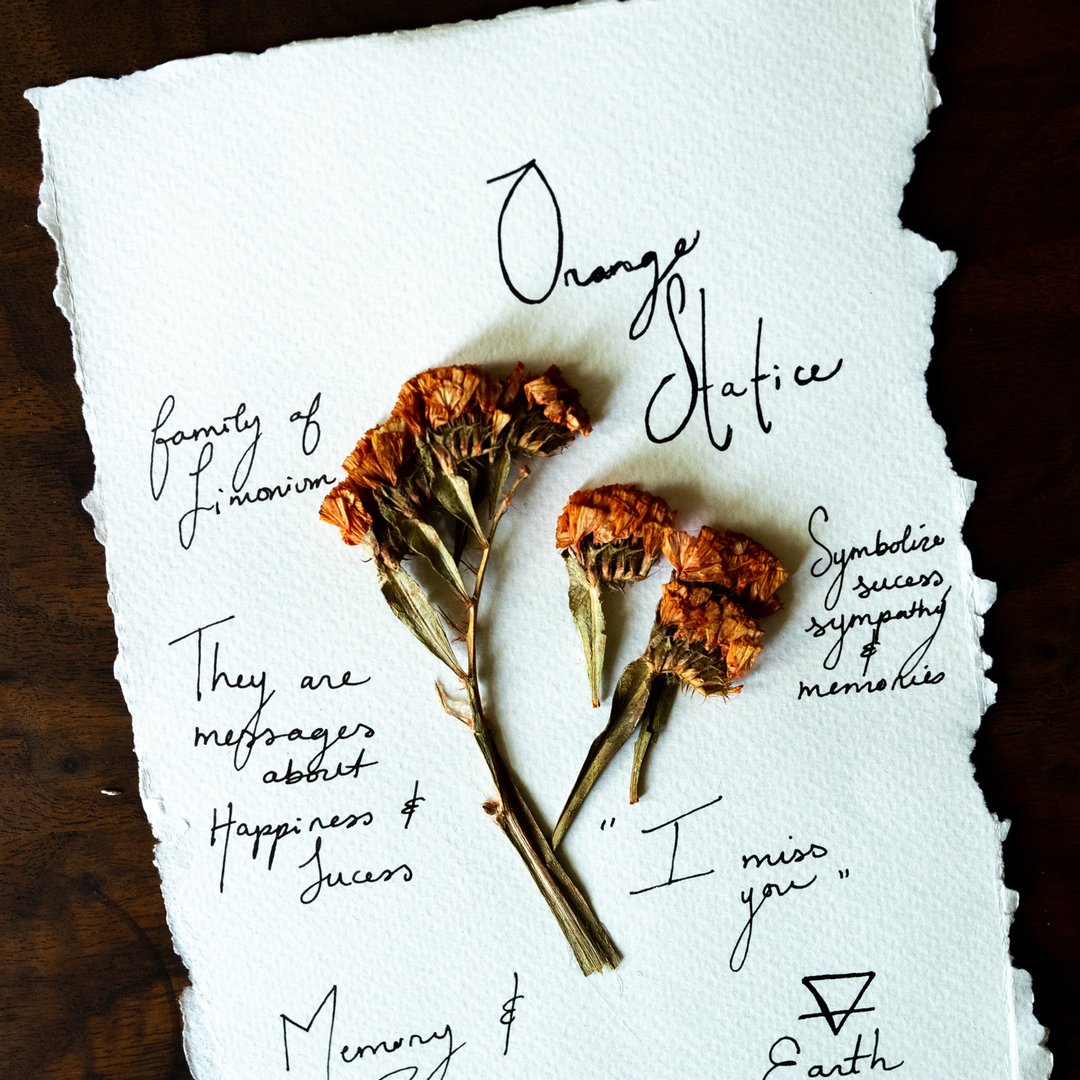 Orange
Statice
family of
Limonium
Symbolize
sucess
sympathy
&
memories
They are
messages
about
Happiness &
Sucess
"I miss
you"
Memory &
Earth